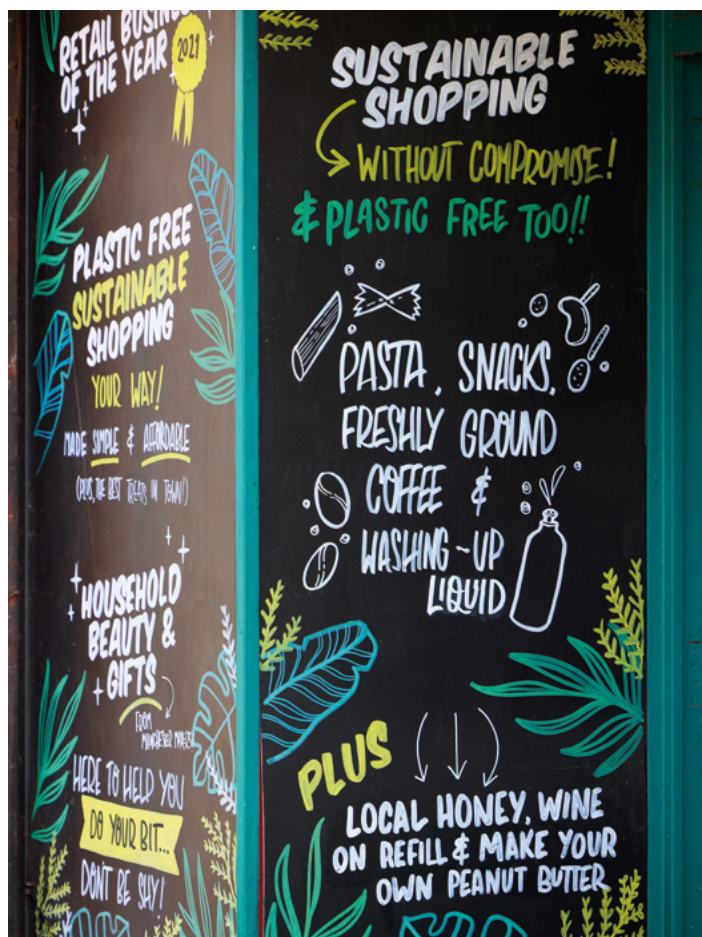 RETAIL BUSINESS
OF THE YEAR
2021
PLASTIC FREE
SUSTAINABLE
SHOPPING
YOUR WAY!
MADE SIMPLE & AFFORDABLE
(PLUS, THE BEST TREATS IN TOWN!)
HOUSEHOLD
BEAUTY &
GIFTS
FROM
MANCHESTER MAKERS
HERE TO HELP YOU
DO YOUR BIT...
DON'T BE SHY!
SUSTAINABLE
SHOPPING
WITHOUT COMPROMISE!
& PLASTIC FREE TOO!!
PASTA, SNACKS,
FRESHLY GROUND
COFFEE &
WASHING-UP
LIQUID
PLUS
LOCAL HONEY, WINE
ON REFILL & MAKE YOUR
OWN PEANUT BUTTER